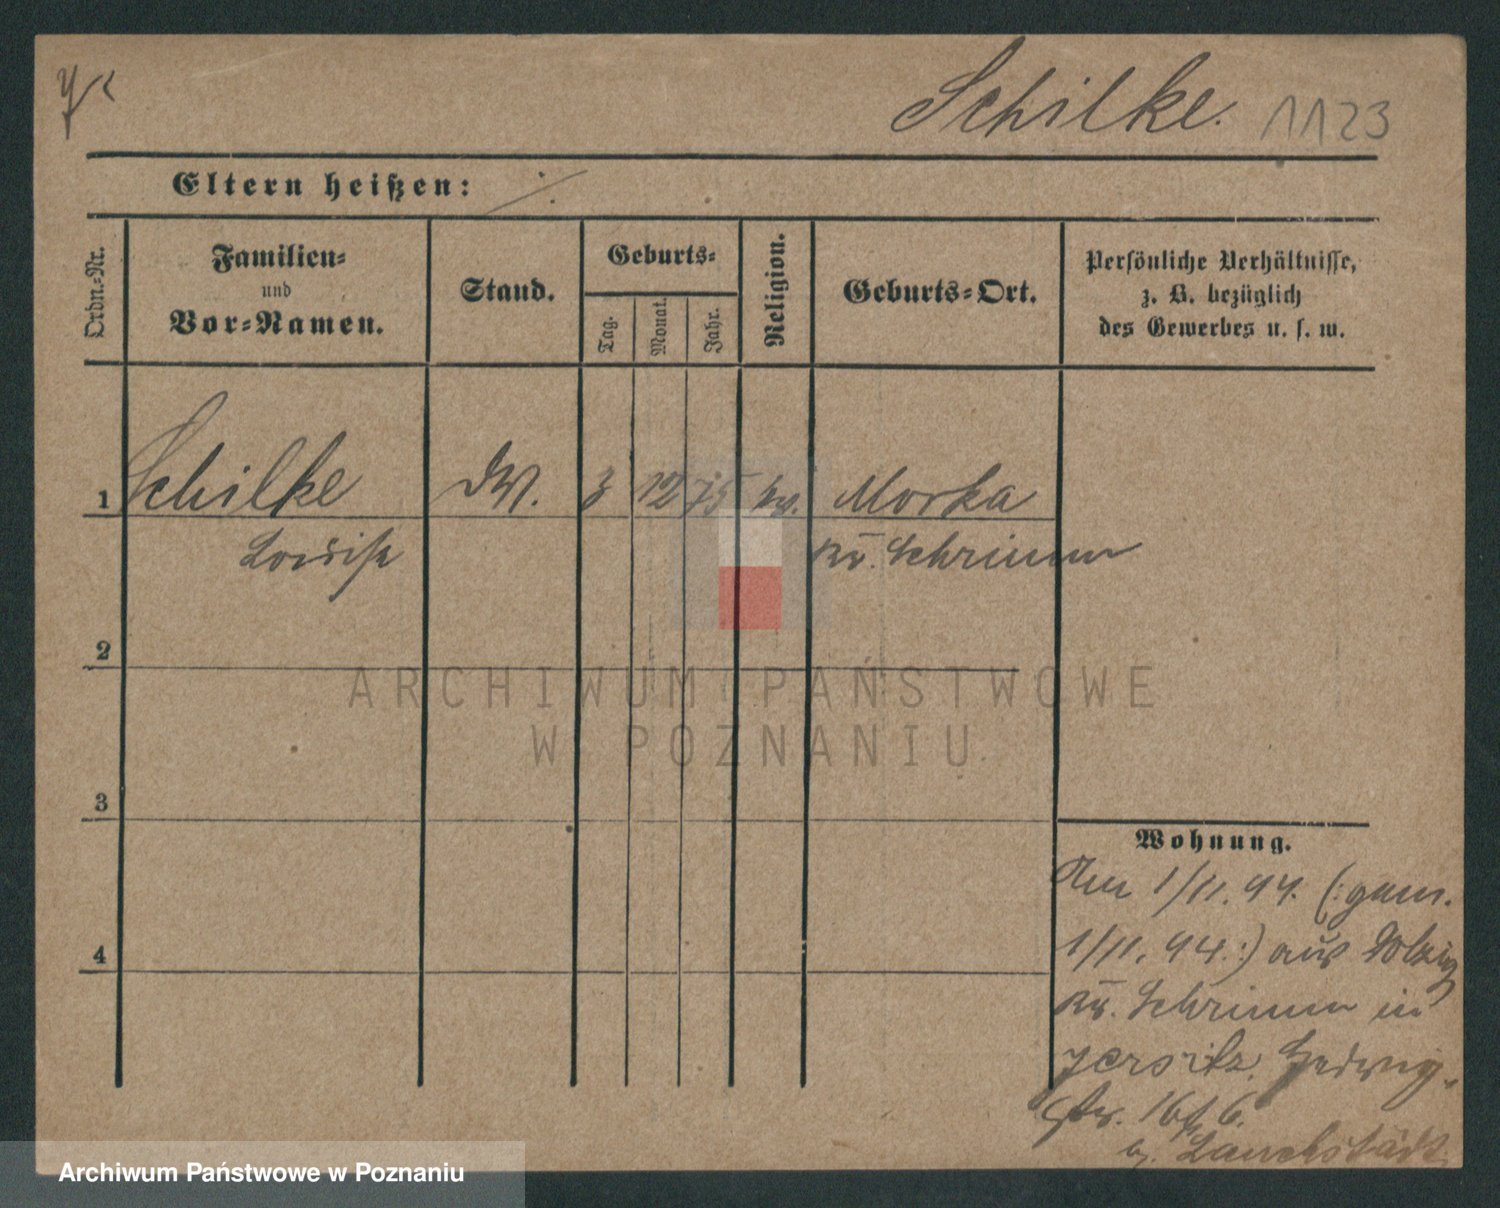 Schilke. 1123
Eltern heißen: ./.
Ordn.-Nr.
Familien-
und
Vor-Namen.
Stand.
Geburts-
Tag.
Monat.
Jahr.
Religion.
Geburts-Ort.
Persönliche Verhältnisse,
z. B. bezüglich
des Gewerbes u. s. w.
1 Schilke 3 12 75 Morka
Louise Kr. Schrimm
2
3
4
Wohnung.
Am 1/11. 94. (: gem.
1/11. 94. :) aus Dolzig
Kr. Schrimm in
Jersitz, Hedwig-
Str. 16
Lauchstädt
ARCHIWUM PAŃSTWOWE
W POZNANIU
Archiwum Państwowe w Poznaniu